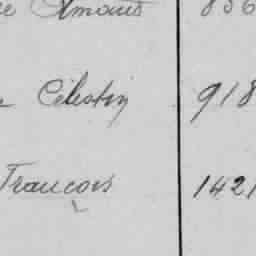 Amours 836
Célestin 918
Francois 1421